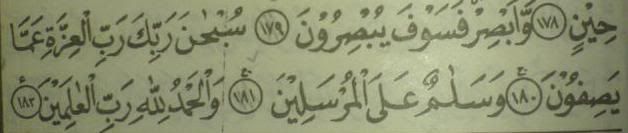 حِيْنٍ ﴿١٧٨﴾ وَّاَبْصِرْ فَسَوْفَ يُبْصِرُوْنَ ﴿١٧٩﴾ سُبْحٰنَ رَبِّكَ رَبِّ الْعِزَّةِ عَمَّا
يَصِفُوْنَ ﴿١٨٠﴾ وَسَلٰمٌ عَلَى الْمُرْسَلِيْنَ ﴿١٨١﴾ وَالْحَمْدُ لِلّٰهِ رَبِّ الْعٰلَمِيْنَ ﴿١٨٢﴾